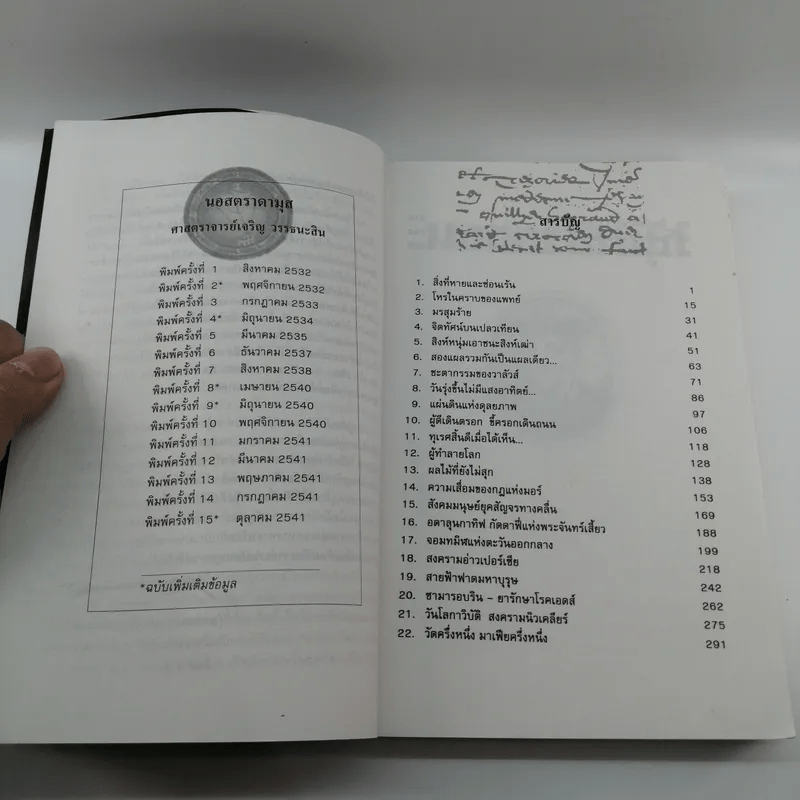 นอสตราดามุส
ศาสตราจารย์เจริญ วรรธนะสิน
พิมพ์ครั้งที่ 1 สิงหาคม 2532
พิมพ์ครั้งที่ 2* พฤศจิกายน 2532
พิมพ์ครั้งที่ 3 กรกฎาคม 2533
พิมพ์ครั้งที่ 4* มิถุนายน 2534
พิมพ์ครั้งที่ 5 มีนาคม 2535
พิมพ์ครั้งที่ 6 ธันวาคม 2537
พิมพ์ครั้งที่ 7 สิงหาคม 2538
พิมพ์ครั้งที่ 8* เมษายน 2540
พิมพ์ครั้งที่ 9* มิถุนายน 2540
พิมพ์ครั้งที่ 10 พฤศจิกายน 2540
พิมพ์ครั้งที่ 11 มกราคม 2541
พิมพ์ครั้งที่ 12 มีนาคม 2541
พิมพ์ครั้งที่ 13 พฤษภาคม 2541
พิมพ์ครั้งที่ 14 กรกฎาคม 2541
พิมพ์ครั้งที่ 15* ตุลาคม 2541
*ฉบับเพิ่มเติมข้อมูล
สารบัญ
1. สิ่งที่หายและซ่อนเร้น 1
2. โหรในคราบของแพทย์ 15
3. มรสุมร้าย 31
4. จิตทัศน์บนเปลวเทียน 41
5. สิงห์หนุ่มเอาชนะสิงห์เฒ่า 51
6. สองแผลรวมกันเป็นแผลเดียว... 63
7. ชะตากรรมของวาลัวส์ 71
8. วันรุ่งขึ้นไม่มีแสงอาทิตย์... 86
9. แผ่นดินแห่งดุลยภาพ 97
10. ผู้ดีเดินตรอก ขี้ครอกเดินถนน 106
11. ทุเรศสิ้นดีเมื่อได้เห็น... 118
12. ผู้ทำลายโลก 128
13. ผลไม้ที่ยังไม่สุก 138
14. ความเสื่อมของกฎแห่งมอร์ 153
15. สังคมมนุษย์ยุคสัญจรทางคลื่น 169
16. อตาลุนกาทิฟ กัดดาฟี่แห่งพระจันทร์เสี้ยว 188
17. จอมทมิฬแห่งตะวันออกกลาง 199
18. สงครามอ่าวเปอร์เซีย 218
19. สายฟ้าฟาดมหาบุรุษ 242
20. ซามารอบริน - ยารักษาโรคเอดส์ 262
21. วันโลกาวิบัติ สงครามนิวเคลียร์ 275
22. วัดครึ่งหนึ่ง มาเฟียครึ่งหนึ่ง 291